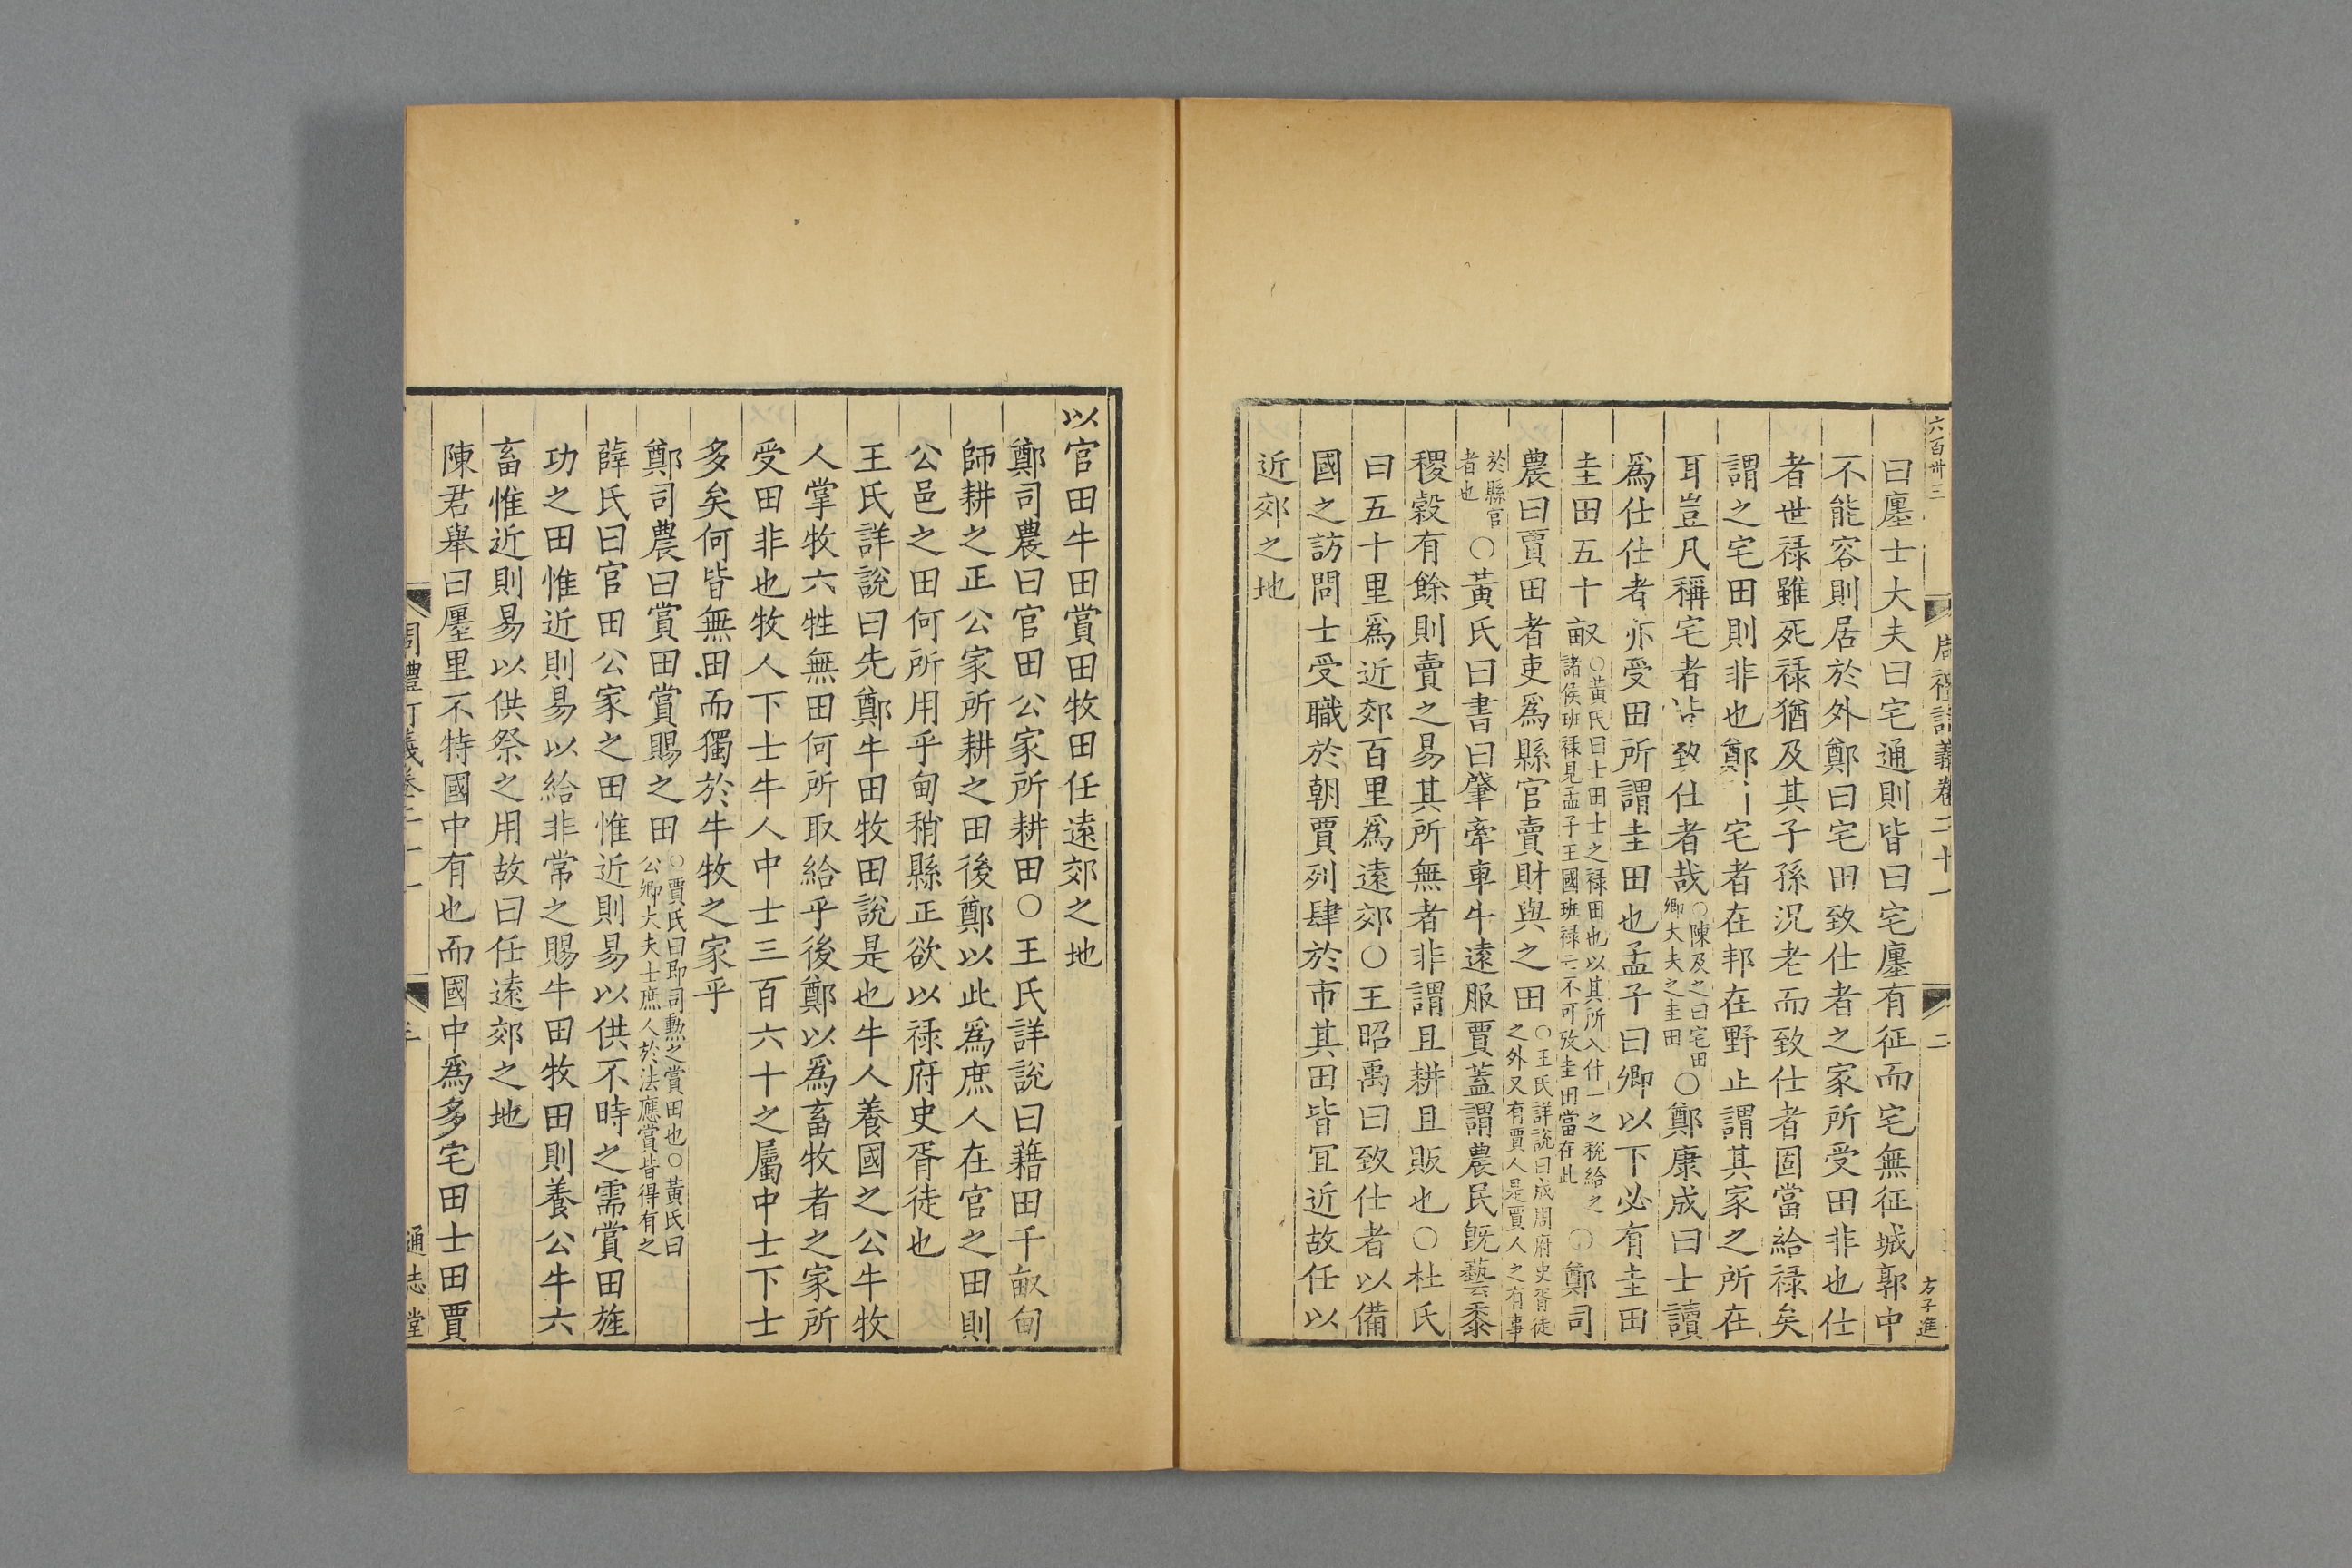 六百卅三
周禮訂義卷二十一
二
方子進
曰廛士大夫曰宅通則皆曰宅廛有征而宅無征城郭中
不能容則居於外鄭曰宅田致仕者之家所受田非也仕
者世禄雖死禄猶及其子孫況老而致仕者固當給禄矣
謂之宅田則非也鄭宅者在邦在野止謂其家之所在
耳豈凡稱宅者皆致仕者哉
○陳及之曰宅田
卿大夫之圭田
○鄭康成曰士讀
爲仕仕者亦受田所謂圭田也孟子曰卿以下必有圭田
圭田五十畝
○黃氏曰士田士之禄田也以其所入什一之稅給之
諸侯班禄見孟子王國班禄云不可攷圭田當在此
○鄭司
農曰賈田者吏爲縣官賣財與之田
○王氏詳說曰成周府史胥徒
之外又有賈人是賈人之有事
於縣官
者也
○黃氏曰書曰肇牽車牛遠服賈蓋謂農民既藝黍
稷穀有餘則賣之易其所無者非謂且耕且販也○杜氏
曰五十里爲近郊百里爲遠郊○王昭禹曰致仕者以備
國之訪問士受職於朝賈列肆於市其田皆宜近故任以
近郊之地
以官田牛田賞田牧田任遠郊之地
鄭司農曰官田公家所耕田○王氏詳說曰藉田千畝甸
師耕之正公家所耕之田後鄭以此爲庶人在官之田則
公邑之田何所用乎甸稍縣正欲以禄府史胥徒也
王氏詳說曰先鄭牛田牧田說是也牛人養國之公牛牧
人掌牧六牲無田何所取給乎後鄭以爲畜牧者之家所
受田非也牧人下士牛人中士三百六十之屬中士下士
多矣何皆無田而獨於牛牧之家乎
鄭司農曰賞田賞賜之田
○賈氏曰即司勳之賞田也○黃氏曰
公卿大夫士庶人於法應賞皆得有之
薛氏曰官田公家之田惟近則易以供不時之需賞田旌
功之田惟近則易以給非常之賜牛田牧田則養公牛六
畜惟近則易以供祭之用故曰任遠郊之地
陳君舉曰廛里不特國中有也而國中爲多宅田士田賈
周禮訂義卷二十一
三
通志堂